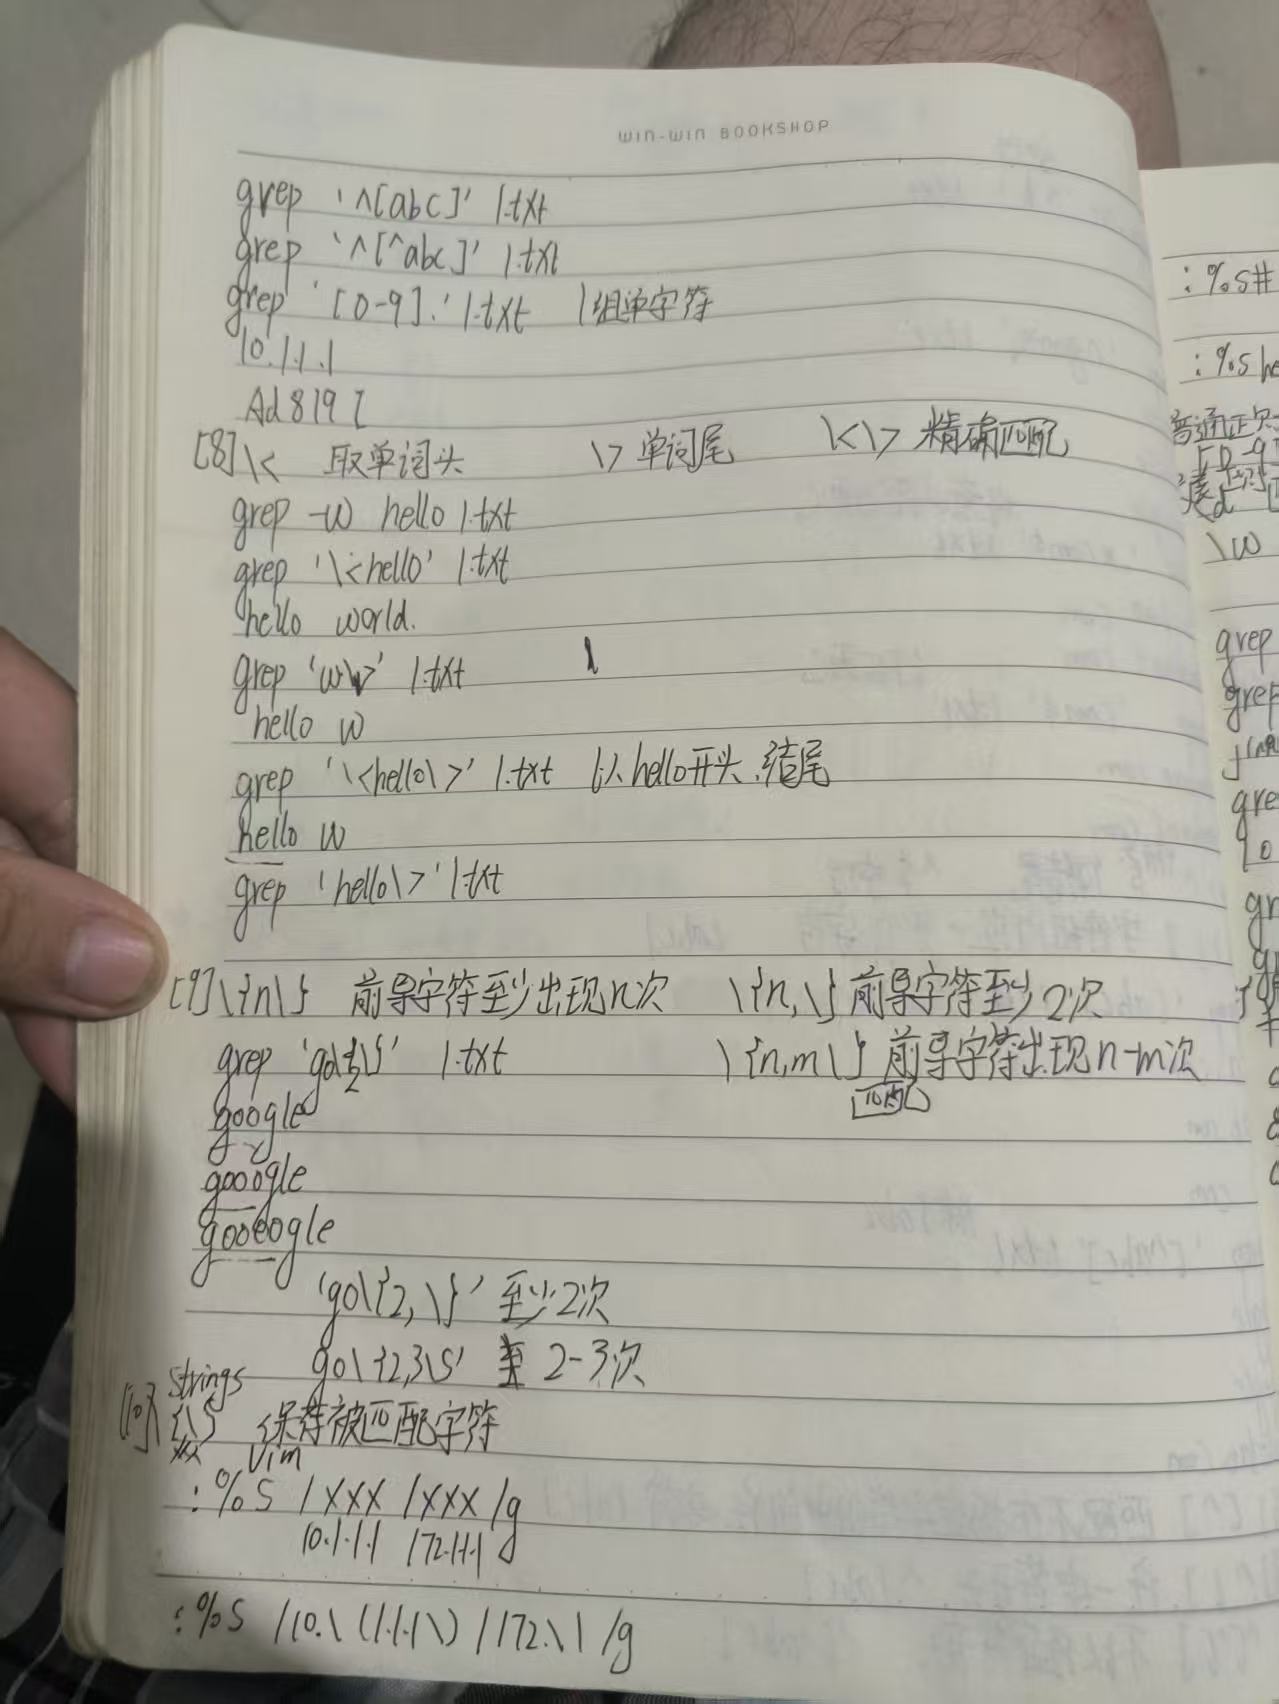 WIN-WIN BOOKSHOP
grep '^[abc]' 1.txt
grep '^[^abc]' 1.txt
grep '[0-9].' 1.txt 1组单字符
10.1.1.1
Ad819
[8] \< 取单词头 \> 单词尾 \<\> 精确匹配
grep -w hello 1.txt
grep '\<hello' 1.txt
hello world.
grep 'w\>' 1.txt
hello w
grep '\<hello\>' 1.txt 以hello开头.结尾
hello w
grep 'hello\>' 1.txt
[9] \{n\} 前导字符至少出现n次 \{n,\} 前导字符至少2次
grep 'go\{2\}' 1.txt \{n,m\} 前导字符出现n-m次
匹配
google
gooogle
goooogle
'go\{2,\}' 至少2次
go\{2,3\}' 2-3次
strings
[10] 保存被匹配字符
vim
:%s /xxx /xxx /g
10.1.1.1 172.1.1.1
:%s /10.\(1.1.1\) /172.\1 /g
:%s#
:%s he
\w
grep
grep
gre